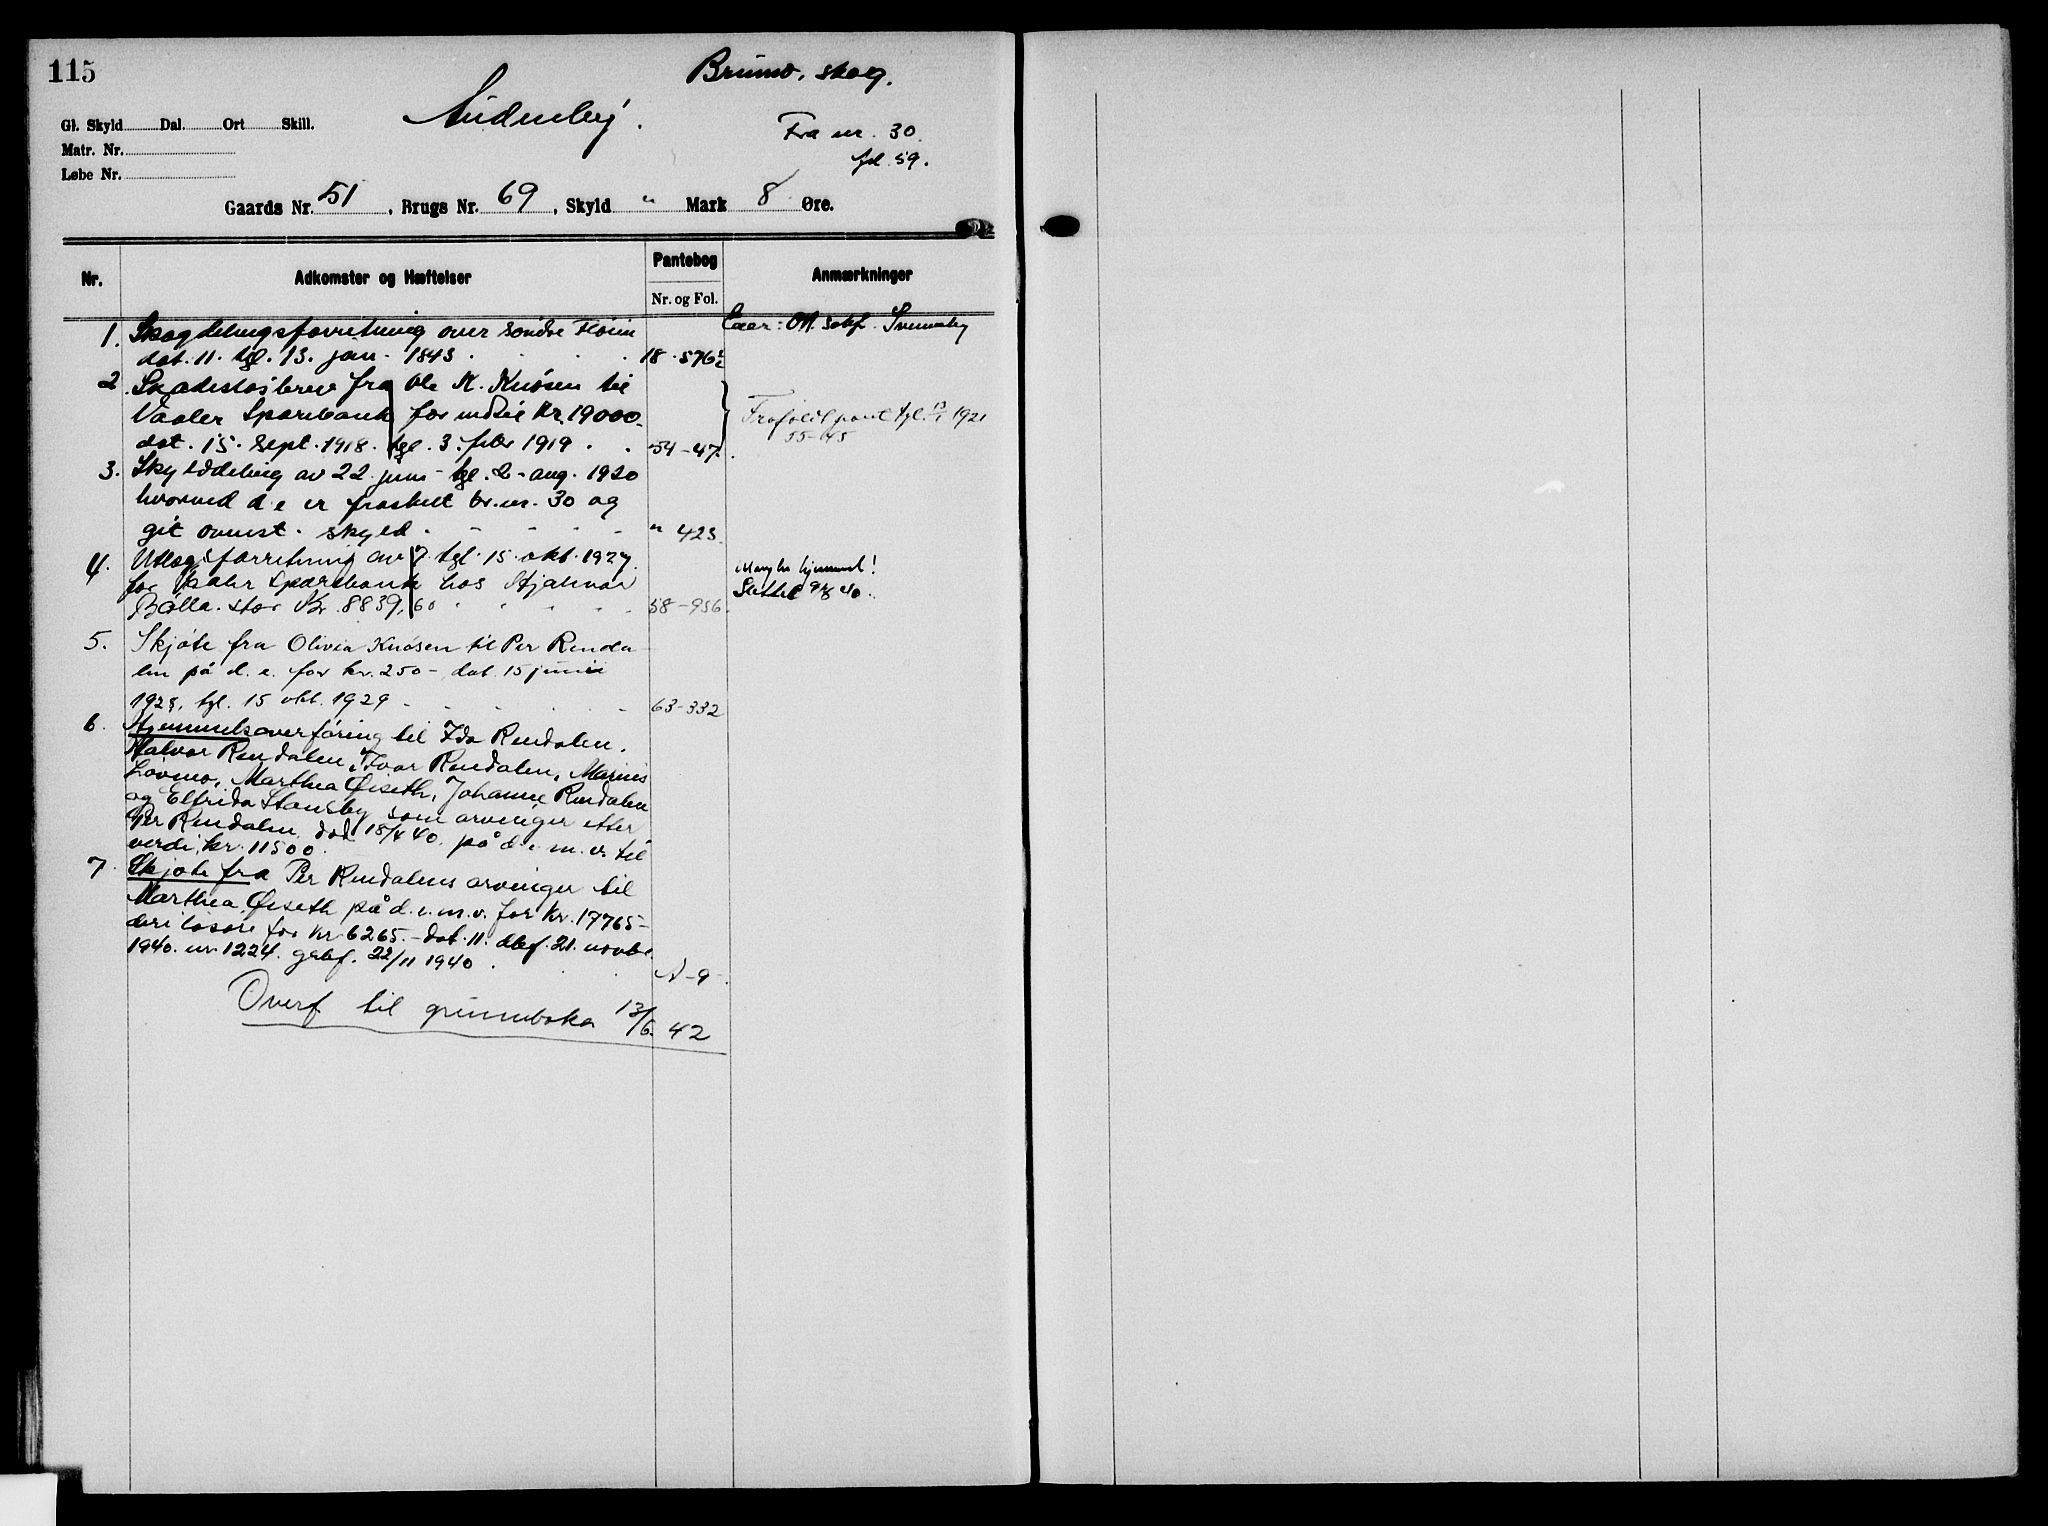 115
Brumo, skog.
Fra nr. 30
fol 59.
Gl. Skyld Dal. Ort Skill.
Matr. Nr.
Løbe Nr.
Gaards Nr. 51, Brugs Nr. 69, Skyld " Mark 8 Øre.
Nr. Adkomster og Hæftelser Pantebog Anmærkninger
Nr. og Fol.
1. Skogdelingsforretning over søndre
dat. 11. tgl. 13. jan. 1843 18-576
2. Skadesløsbrev fra Ole K. Knøsen til
Vaaler Sparebank for indtil Kr. 19000.
dat. 15. sept. 1918. tgl. 3. febr 1919. 54-47.
Frafaldt pant tgl. 1921
55-45
3. Skylddeling av 22 juni - tgl. 2 - aug. 1920
hvorved d. e er fraskilt br. nr. 30 og
git ovenst. skyld " 423.
4. Utlægsforretning av 7. tgl. 15. okt. 1927.
for Vaaler Sparebank hos Hjalmar
Bølla. stor Kr. 8839,60 58-956.
Mangler hjemmel!
Slettet 40.
5. Skjøte fra Olivia Knøsen til Per Renda-
len på d. e. for kr. 250 - dat. 15 juni
1928, tgl. 15 okt. 1929 63-332
6. Hjemmelsoverføring til Ida Rendalen,
Halvor Rendalen, Ivar Rendalen, Marius
Løvmo, Marthea Øiseth, Johanne Rendalen
og Elfrida Stansby som arvinger etter
Per Rendalen, død 18/4 40. på d. e. m. v. til
verdi, kr. 11500.
7. Skjøte fra Per Rendalens arvinger til
Marthea Øiseth på d. e. m. v. for kr. 17765-
deri løsøre for kr 6265.- dat. 11. dbf. 21. novbr
1940. nr. 1224. gebf. 22/11 1940. A-9
Overf til grunnboka 13/6. 42